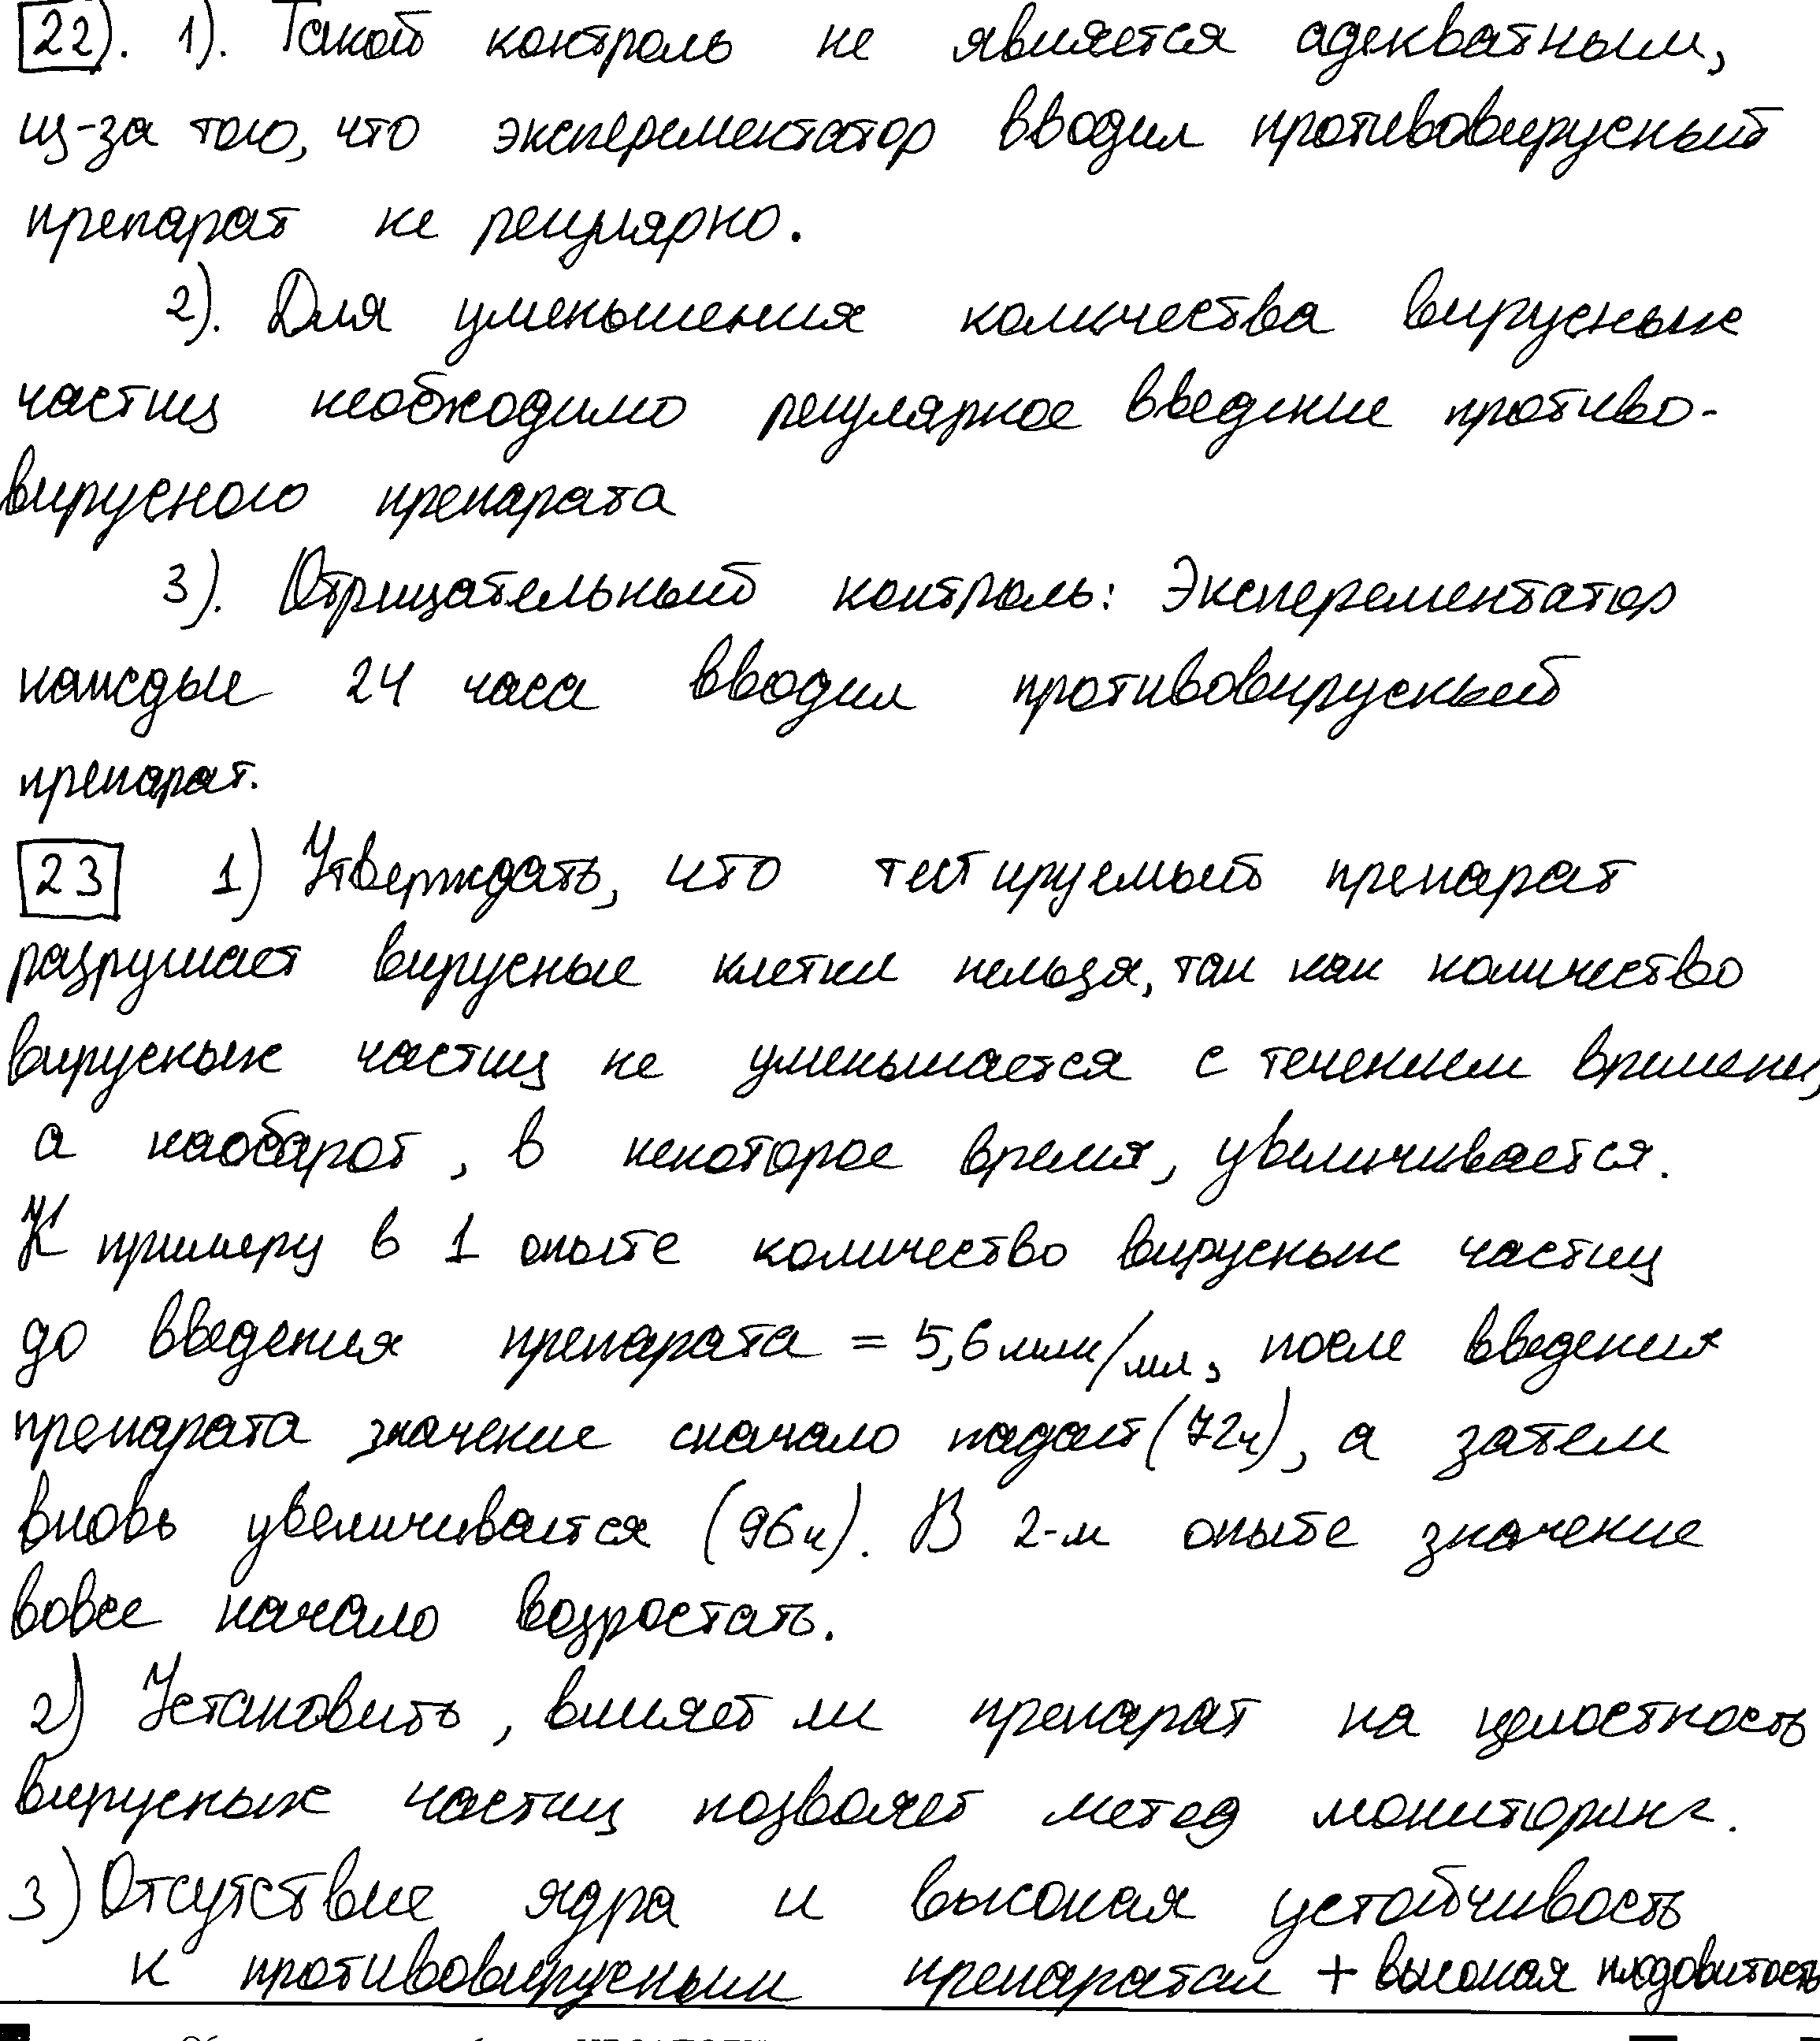 22). 1). Такой контроль не является адекватным,
из-за того, что эксперементатор вводил противовирусный
препарат не регулярно.
2). Для уменьшения количества вирусных
частиц необходимо регулярное введение противо-
вирусного препарата
3). Отрицательный контроль: Эксперементатор
каждые 24 часа вводил противовирусный
препарат.
23 1) Утверждать, что тестируемый препарат
разрушает вирусные клетки нельзя, так как количество
вирусных частиц не уменьшается с течением времени,
а наобарот, в некоторое время, увеличивается.
К примеру в 1 опыте количество вирусных частиц
до введения препарата = 5,6 млн/мл, после введения
препарата значение сначало падает (72ч), а затем
вновь увеличивается (96ч). В 2-м опыте значение
вовсе начало возростать.
2) Установить, влияет ли препарат на целостность
вирусных частиц позволяет метод мониторинг.
3) Отсутствие ядра и высокая устойчивость
к противовирусным препаратам + высокая плодовитость